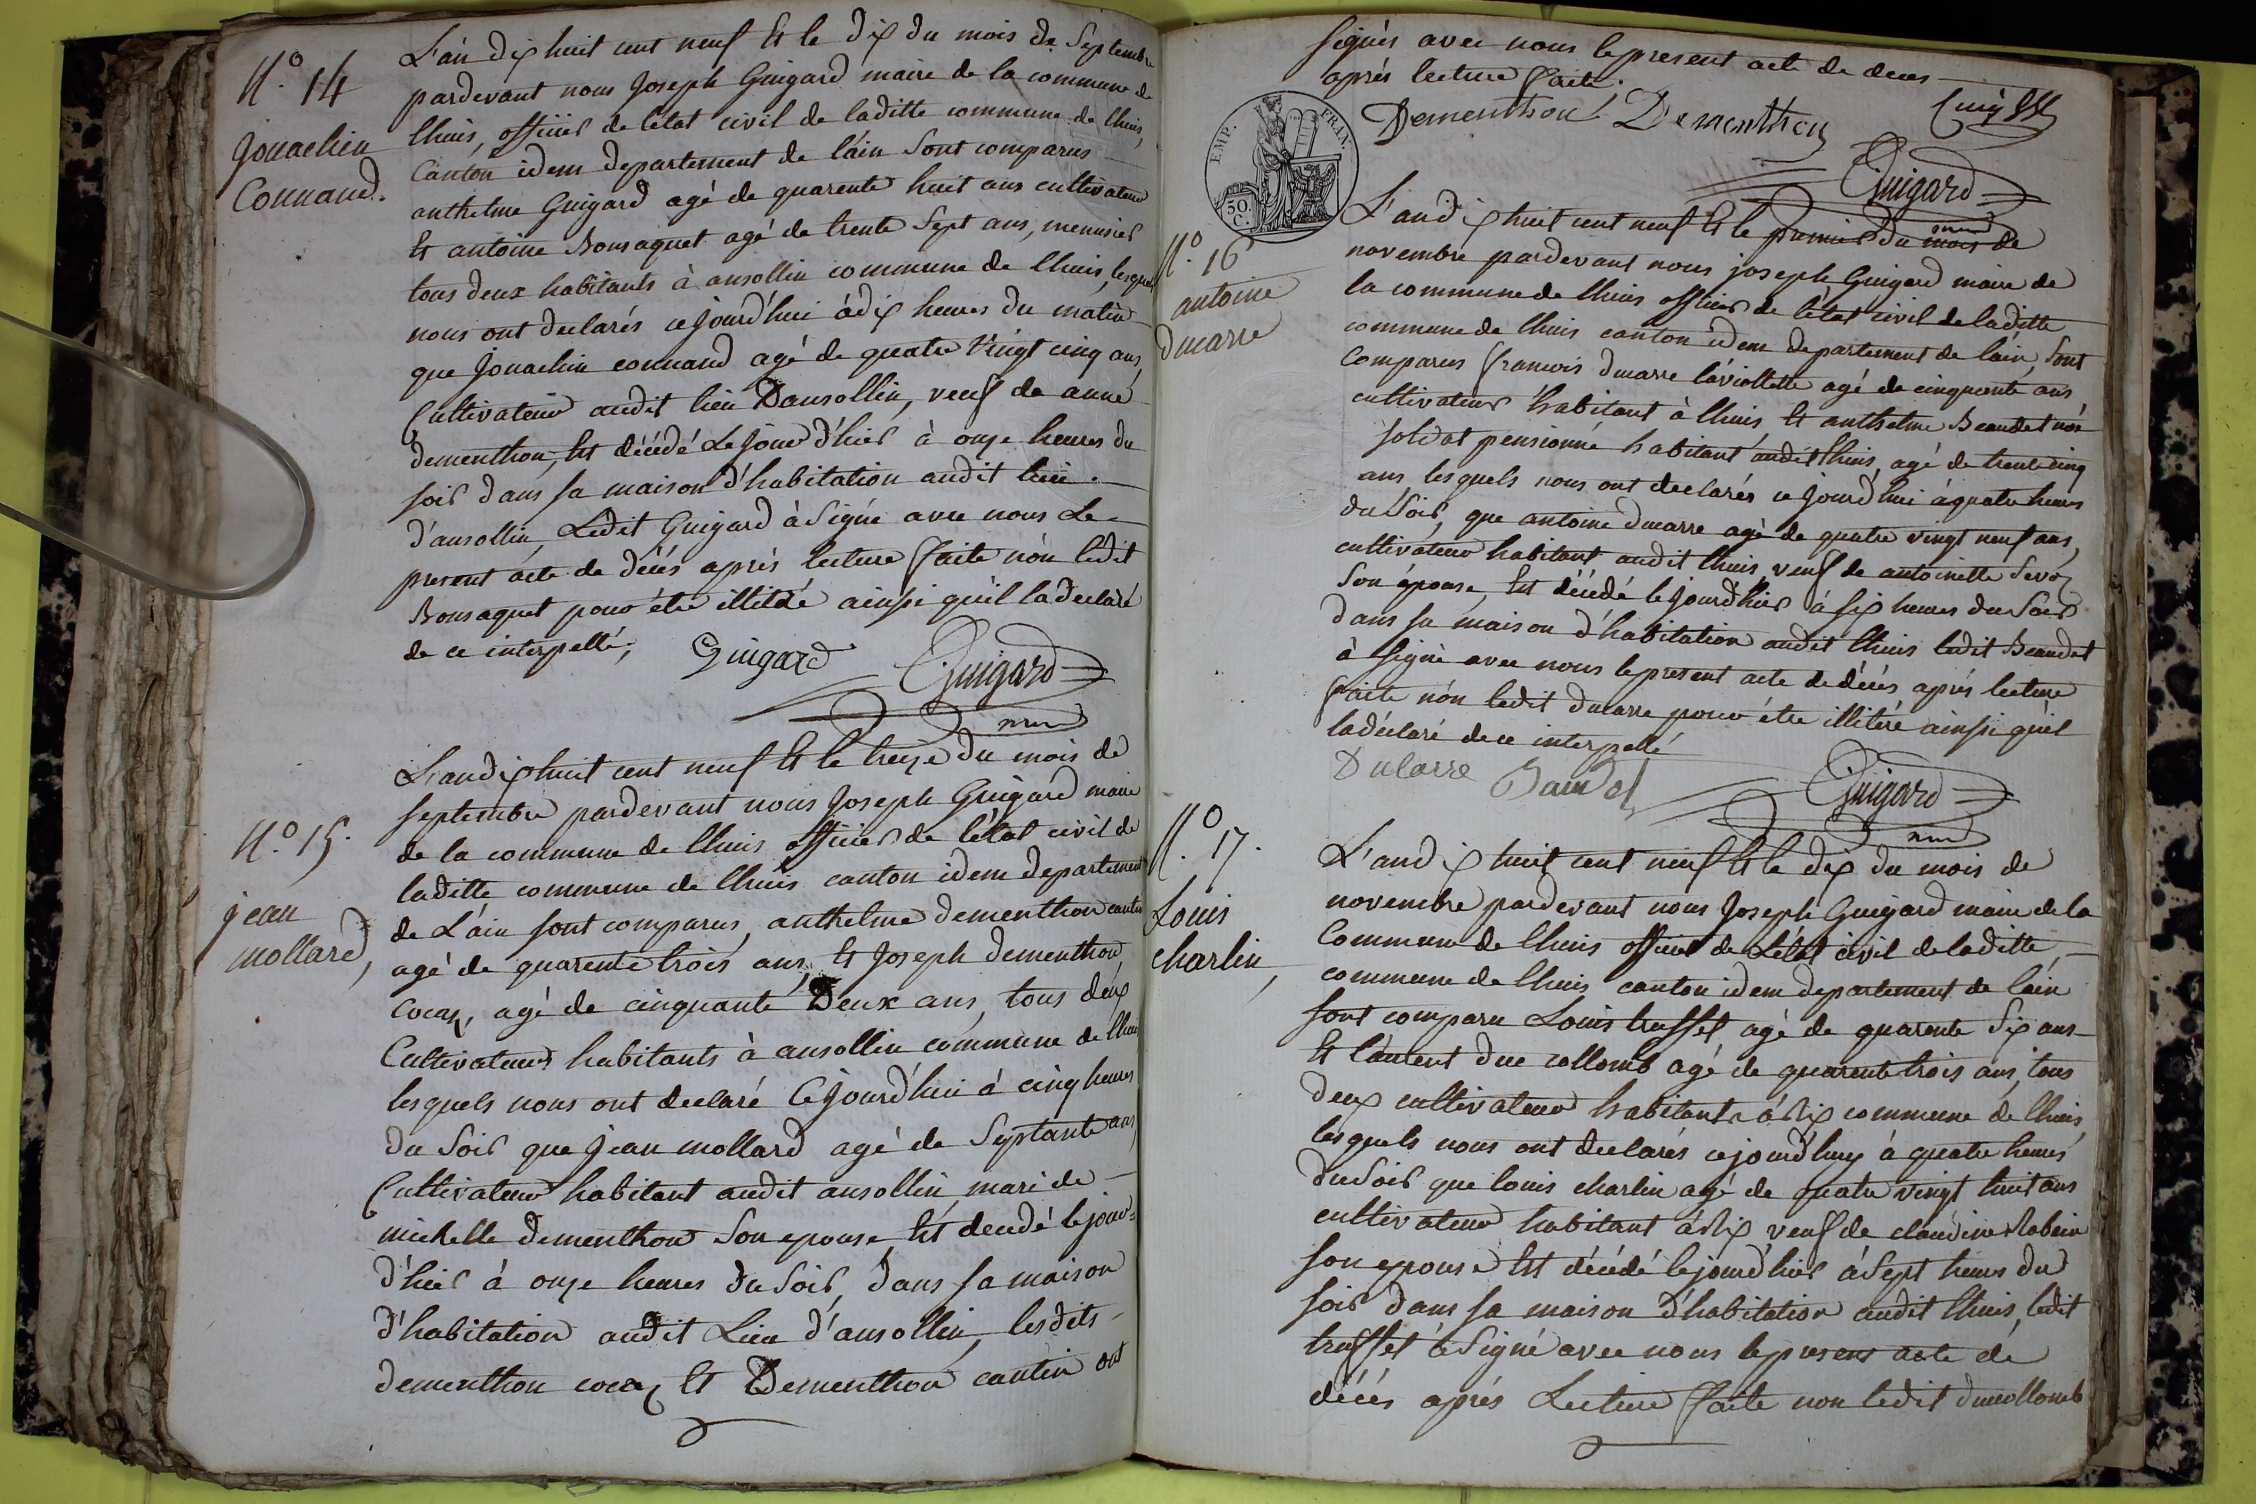 N.° 14
Jouachin
Connand.
L'an dix huit cent neuf Et le dix du mois de Septembre
pardevant nous Joseph Guigard maire de la commune de
lhuis, officier de l'état civil de laditte commune de lhuis,
canton idem departement de l'ain Sont comparus
anthelme Guigard agé de quarente huit ans cultivateur
Et antoine Bonsaquet agé de trente Sept ans, menusier
tous deux habitants à ansollin commune de lhuis, lesquels
nous ont declarés ce jourd'hui à dix heures du matin
que Jouachin connand agé de quatre Vingt cinq ans,
Cultivateur audit lieu Dansollin, veuf de anne
dementhon, Est décédé Le Jour d'hier à onze heures du
soir dans sa maison d'habitation audit lieu
d'ansollin, Ledit Guigard à Signé avec nous Le
present acte de décés aprés lecture faite nón ledit
Bonsaquet pour étre illitéré ainsi qu'il la declaré
de ce interpellé;
Guigard Guigard
N.° 15.
jean
mollard,
L'an dix huit cent neuf Et le treize du mois de
septembre pardevant nous Joseph Guigard maire
de la commune de lhuis officier de l'état civil de
laditte commune de lhuis canton idem departement
de L'ain sont comparus, anthelme dementhon cantin
agé de quarente trois ans, Et Joseph dementhon
cocaz, agé de cinquante Deux ans, tous deux
Cultivateurs habitants à ansollin commune de lhuis
lesquels nous ont declaré Cejourd'hui à cinq heures
du Soir que Jean mollard agé de Septante ans,
Cultivateur habitant audit ansollin, mari de
michelle dementhon Son epouse Est decedé le jour
d'hier à onze heures du Soir, dans sa maison
d'habitation audit Lieu d'ansollin, lesdits
dementhon cocaz Et Dementhon cantin ont
signés avec nous le present acte de deces
aprés lecture faite.
Dementhon Dementhon
Guigard
EMP. FRAN.
50 C.
N.° 16
antoine
ducarre
L'an dix huit cent neuf Et le premier du mois de
novembre pardevant nous joseph Guigard maire de
la commune de lhuis officier de létat civil de laditte
commune de lhuis canton idem departement de l'ain, Sont
Comparus francois ducarre laviollette agé de cinquante ans
cultivateur habitant à lhuis Et anthelme Beaudet
soldat pensionné habitant audit lhuis, agé de trente cinq
ans lesquels nous ont declarés ce jourd'hui à quatre heures
du Soir, que antoine ducarre agé de quatre vingt neuf ans,
cultivateur habitant audit lhuis, veuf de antoinette
Son épouse, Est décédé le jourd'hier à six heures du Soir
dans sa maison d'habitation audit lhuis ledit Beaudet
à signé avec nous le present acte de décés aprés lecture
faite nón ledit ducarre pour étre illitéré ainsi qu'il
la déclaré de ce interpellé
Ducarre Baudet Guigard
N.° 17.
Louis
charlin,
L'an dix huit cent neuf Et le dix du mois de
novembre pardevant nous Joseph Guigard maire de la
Commune de lhuis officier de L'état civil de laditte
commune de lhuis canton idem departement de l'ain
sont comparu Louis truffet agé de quarente Six ans
Et laurent duc collomb agé de quarente trois ans, tous
deux cultivateur habitants à Rix commune de lhuis,
lesquels nous ont declarés cejourd'huy à quatre heures
du Soir que louis charlin agé de quatre vingt huit ans
cultivateur habitant à Rix veuf de claudine Robin
son epouse Est décédé le jourd'hier à Sept heures du
soir dans sa maison d'habitation audit lhuis, ledit
truffet à Signé avec nous le present acte de
décés aprés Lecture faite non ledit duccollomb